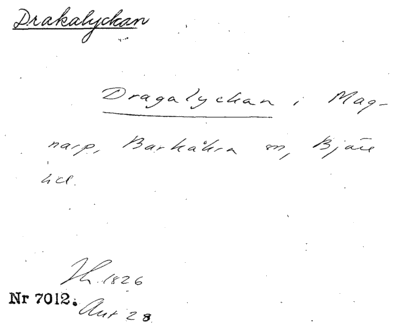 Drakalyckan
Dragalyckan i Mag-
narp, Barkåkra sn, Bjäre
hd.
1826
Nr 7012.
Ant 28